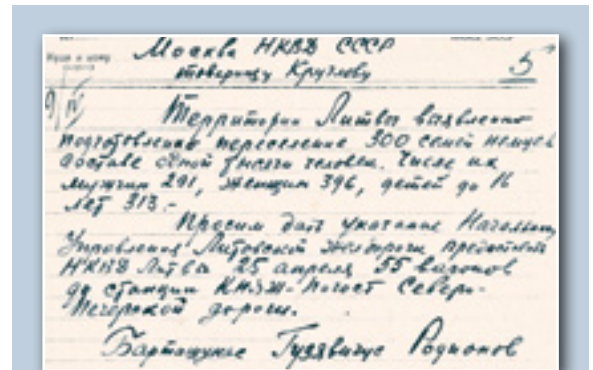 Москва НКВД СССР
товарищу Круглову
5
9/IV
Территории Литвы выявленно
подготовленно переселение 300 семей немцев
составе одной тысячи человек. Числе их
мужчин 291, женщин 396, детей до 16
лет 313.-
Просим дать указание Начальнику
Управления Литовской желдороги
НКВД Литвы 25 апреля 55 вагонов
до станции Княж-Погост Северо-
Печорской дороги.
Барташунас Гузявичус Родионов